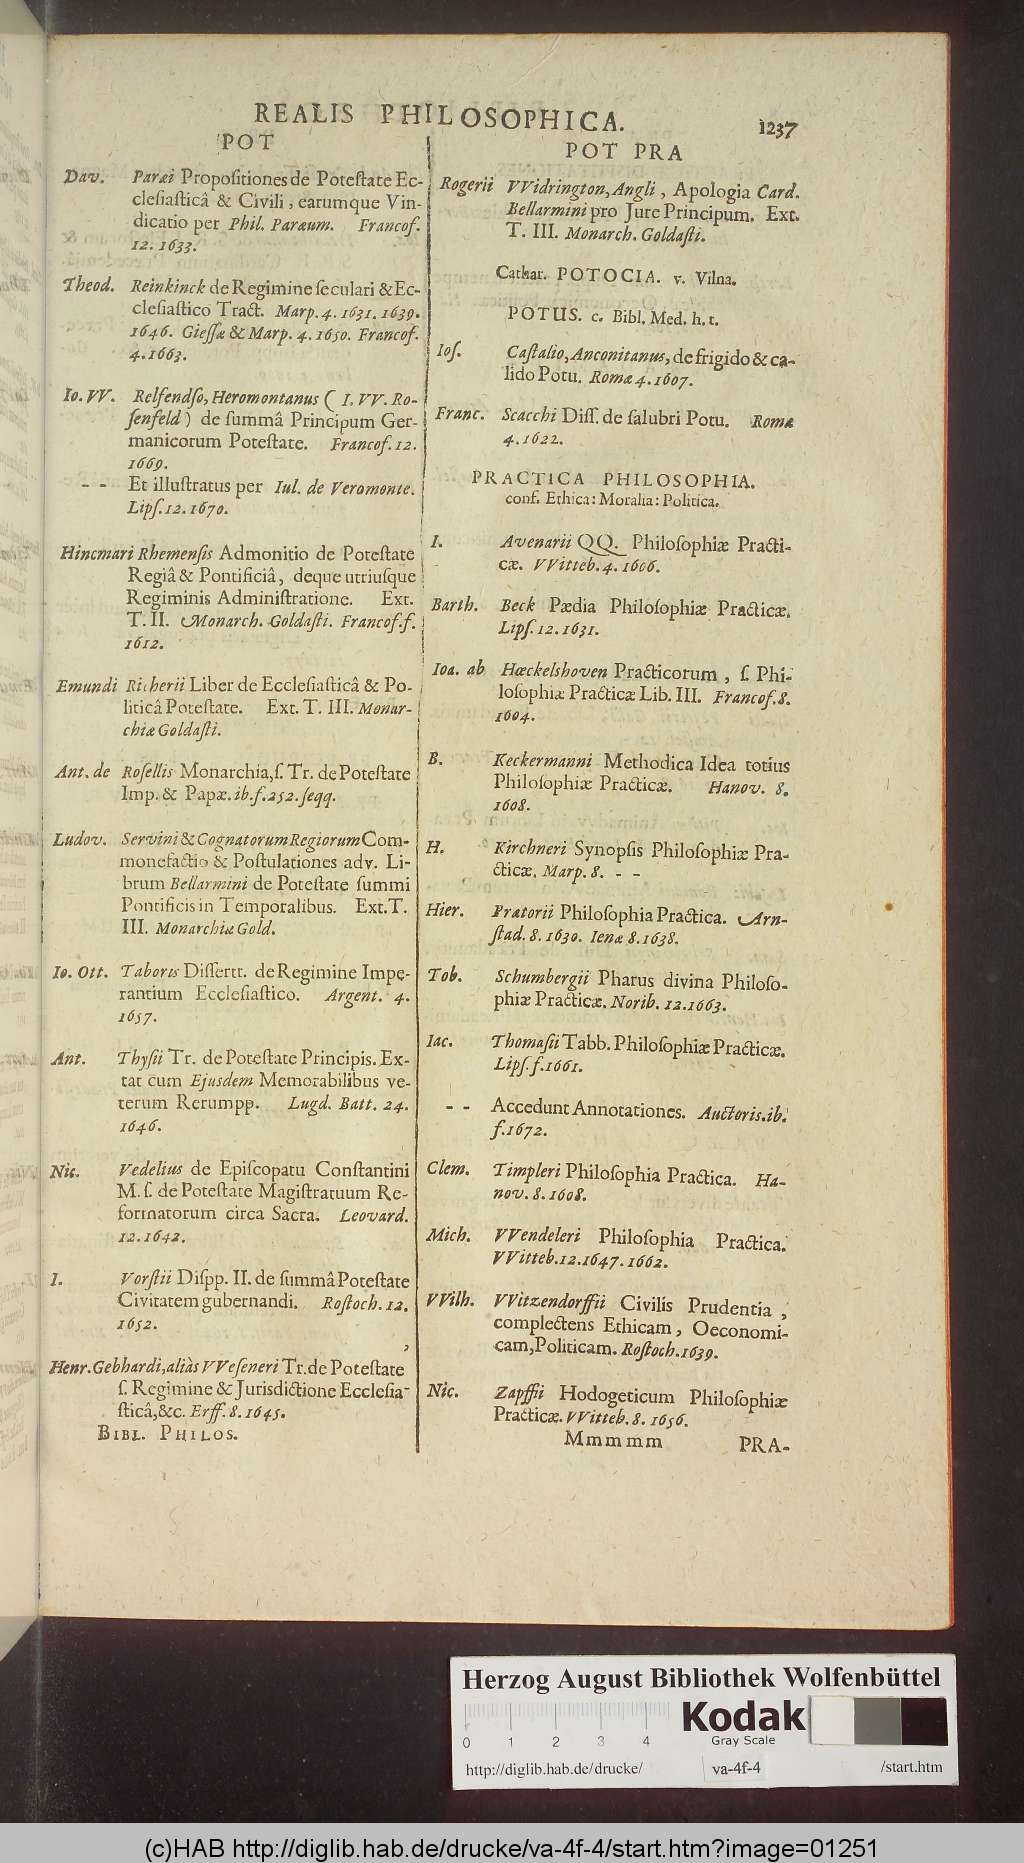 REALIS PHILOSOPHICA.
1237
POT
Dav. Paræi Propositiones de Potestate Ec-
clesiasticâ & Civili, earumque Vin-
dicatio per Phil. Paræum. Francof.
12. 1633.
Theod. Reinkinck de Regimine seculari & Ec-
clesiastico Tract. Marp. 4. 1631. 1639.
1646. Giessæ & Marp. 4. 1650. Francof.
4. 1663.
Io. VV. Relfendso, Heromontanus ( I. VV. Ro-
senfeld ) de summâ Principum Ger-
manicorum Potestate. Francof. 12.
1669.
- - Et illustratus per Iul. de Veromonte.
Lips. 12. 1670.
Hincmari Rhemensis Admonitio de Potestate
Regiâ & Pontificiâ, deque utriusque
Regiminis Administratione. Ext.
T. II. Monarch. Goldasti. Francof. f.
1612.
Emundi Richerii Liber de Ecclesiasticâ & Po-
liticâ Potestate. Ext. T. III. Monar-
chiæ Goldasti.
Ant. de Rosellis Monarchia, s. Tr. de Potestate
Imp. & Papæ. ib. f. 252. seqq.
Ludov. Servini & Cognatorum Regiorum Com-
monefactio & Postulationes adv. Li-
brum Bellarmini de Potestate summi
Pontificis in Temporalibus. Ext. T.
III. Monarchiæ Gold.
Io. Ott. Taboris Dissertt. de Regimine Impe-
rantium Ecclesiastico. Argent. 4.
1657.
Ant. Thysii Tr. de Potestate Principis. Ex-
tat cum Ejusdem Memorabilibus ve-
terum Rerumpp. Lugd. Batt. 24.
1646.
Nic. Vedelius de Episcopatu Constantini
M. s. de Potestate Magistratuum Re-
formatorum circa Sacra. Leovard.
12. 1642.
I. Vorstii Dispp. II. de summâ Potestate
Civitatem gubernandi. Rostoch. 12.
1652.
Henr. Gebhardi, aliàs VVeseneri Tr. de Potestate
s. Regimine & Jurisdictione Ecclesia-
sticâ, &c. Erff. 8. 1645.
BIBL. PHILOS.
POT PRA
Rogerii VVidrington, Angli, Apologia Card.
Bellarmini pro Jure Principum. Ext.
T. III. Monarch. Goldasti.
Cathar. POTOCIA. v. Vilna.
POTUS. c. Bibl. Med. h. t.
Ios. Castalio, Anconitanus, de frigido & ca-
lido Potu. Romæ 4. 1607.
Franc. Scacchi Diss. de salubri Potu. Romæ
4. 1622.
PRACTICA PHILOSOPHIA.
conf. Ethica: Moralia: Politica.
I. Avenarii QQ. Philosophiæ Practi-
cæ. VVitteb. 4. 1606.
Barth. Beck Pædia Philosophiæ Practicæ.
Lips. 12. 1631.
Ioa. ab Hœckelshoven Practicorum, s. Phi-
losophiæ Practicæ Lib. III. Francof. 8.
1604.
B. Keckermanni Methodica Idea totius
Philosophiæ Practicæ. Hanov. 8.
1608.
H. Kirchneri Synopsis Philosophiæ Pra-
cticæ. Marp. 8. - -
Hier. Prætorii Philosophia Practica. Arn-
stad. 8. 1630. Ienæ 8. 1638.
Tob. Schumbergii Pharus divina Philoso-
phiæ Practicæ. Norib. 12. 1663.
Iac. Thomasii Tabb. Philosophiæ Practicæ.
Lips. f. 1661.
- - Accedunt Annotationes. Auctoris. ib.
f. 1672.
Clem. Timpleri Philosophia Practica. Ha-
nov. 8. 1608.
Mich. VVendeleri Philosophia Practica.
VVitteb. 12. 1647. 1662.
VVilh. VVitzendorffii Civilis Prudentia,
complectens Ethicam, Oeconomi-
cam, Politicam. Rostoch. 1639.
Nic. Zapffii Hodogeticum Philosophiæ
Practicæ. VVitteb. 8. 1656.
Mmmmm PRA-
Herzog August Bibliothek Wolfenbüttel
0 1 2 3 4
Kodak
Gray Scale
http://diglib.hab.de/drucke/ va-4f-4 /start.htm
(c)HAB http://diglib.hab.de/drucke/va-4f-4/start.htm?image=01251